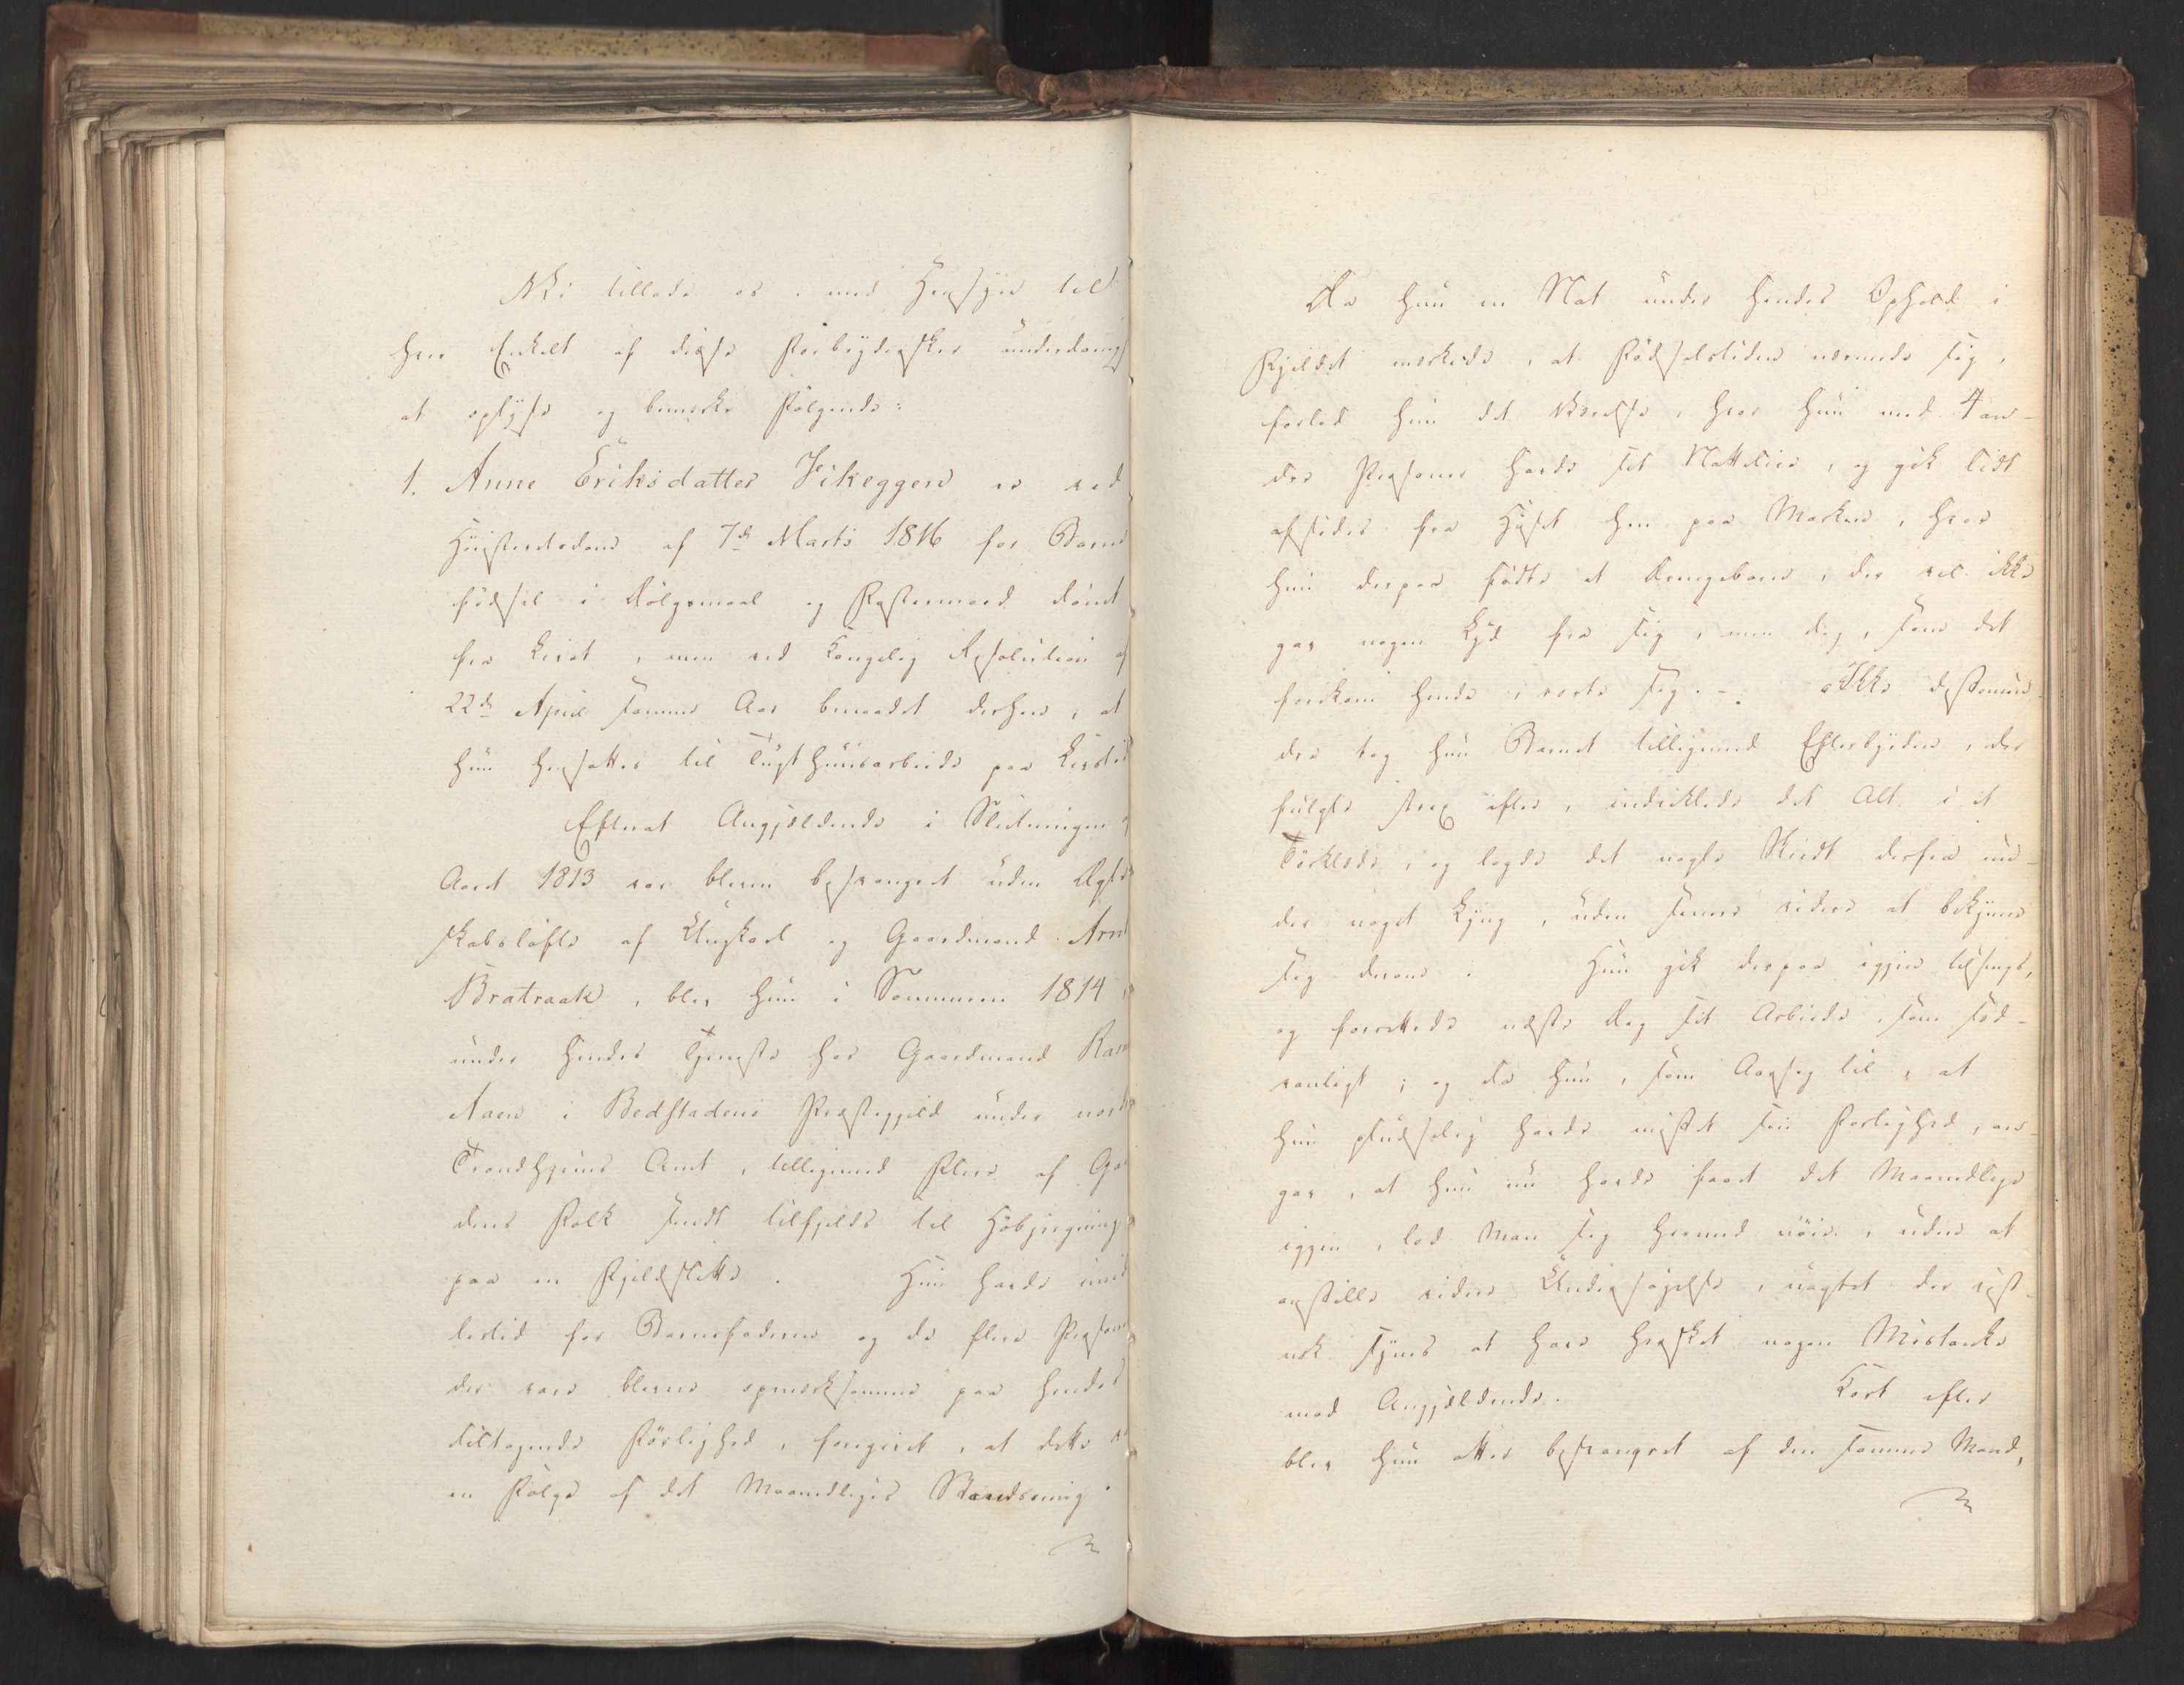 Vi tillade os, med Hensyn til
hver Enkelt af disse Forbrydersker underdanigst
at oplyse og bemærke Følgende:
1. Anne Eriksdatter Vikeggen er ved
Høiesteretsdom af 7de Marts 1816 for Barne
fødsel i Dølgsmaal og Fostermord dømt
fra Livet, men ved Kongelig Resolution af
22de April samme Aar benaadet derhen, at
hun hensættes til Tugthuusarbeide paa Livstid
Efterat Angjældende i Slutningen af
Aaret 1813 var bleven besvangret uden Ægte
skabsløfte af Ungkarl og Gaardmand Arnt
Bratraak, blev hun i Sommeren 1814,
under hendes Tjeneste hos Gaardmand
Aaen i Bedstadens Præstegjeld under nordre
Trondhjems Amt, tilligemed Flere af Gaar
dens Folk sendt tilfjelds til Høbjergning
paa en Fjeldslette. Hun havde imid
lertid for Barnefaderen og de flere Personer
der vare blevne opmærksomme paa hendes
tiltagende Førlighed, foregivet, at dette var
en Følge af det Maanedliges Standsning.
Da hun en Nat under hendes Ophold i
Fjeldet mærkede, at Fødselstiden nærmede sig,
forlod hun det Værelse, hvor hun med 4 an-
dre Personer havde sit Natteleie, og gik lidt
afsides fra Huset hen paa Marken, hvor
hun derpaa fødte et Drengebarn, der vel ikke
gav nogen Lyd fra sig, men dog, som det
forekom hende, rørte sig. - Ikke destomin-
dre tog hun Barnet tilligemed Efterbyrden, der
fulgte strax efter, indviklede det Alt i et
Tørklæde, og lagde det nogle Skridt derfra un-
der noget Lyng, uden senere videre at bekymre
sig derom. Hun gik derpaa igjen tilsengs,
og forrettede næste Dag sit Arbeide, som sæd-
vanligt; og da hun, som Aarsag til, at
hun pludselig havde mistet sin Førlighed, an-
gav, at hun nu havde faaet det Maanedlige
igjen, lod Man sig hermed nøie, uden at
anstille videre Undersøgelse, uagtet der vist-
nok synes at have hersket nogen Mistanke
mod Angjældende. Kort efter
blev hun atter besvangret af den samme Mand,